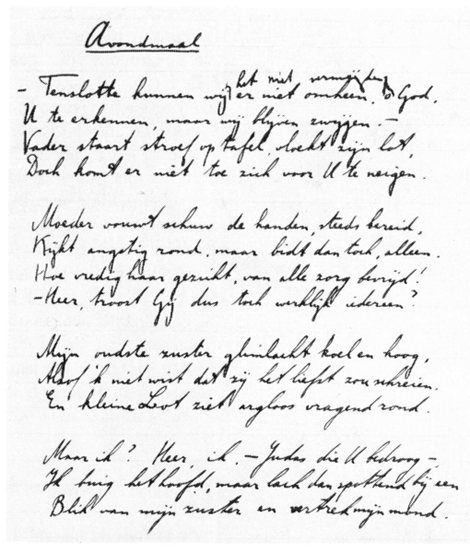 Avondmaal
het niet vermijden
- Tenslotte kunnen wij er niet omheen, o God,
U te erkennen, maar wij blijven zwijgen. -
Vader staart stroef op tafel, vloekt zijn lot,
Doch komt er niet toe zich voor U te neigen.
Moeder vouwt schuw de handen, steeds bereid,
Kijkt angstig rond, maar bidt dan toch, alleen.
Hoe vredig haar gezicht, van alle zorg bevrijd!
- Heer, troost Gij dus toch werklijk iedereen?
Mijn oudste zuster glimlacht koel en hoog,
Alsof 'k niet wist dat zij het liefst zou schreien.
En kleine Loot ziet argloos vragend rond.
Maar ik? Heer, ik. - Judas die U bedroog -
Ik buig het hoofd, maar lach dan spottend bij een
Blik van mijn zuster en vertrek mijn mond.